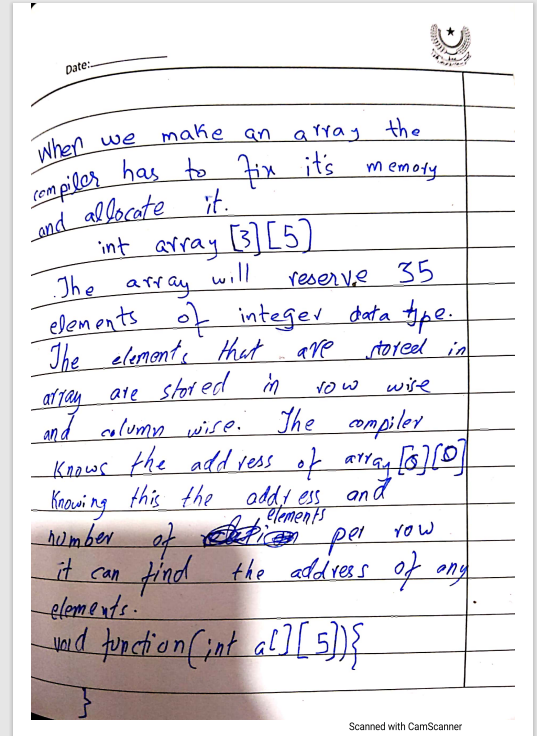 Date:
When we make an array the
compiler has to fix it's memory
and allocate it.
int array [3][5]
The array will reserve 35
elements of integer data type.
The elements that are stored in
array are stored in row wise
and column wise. The compiler
knows the address of array [0][0]
Knowing this the address and
number of elements per row
it can find the address of any
elements.
void function(int a[][5]){
}
Scanned with CamScanner